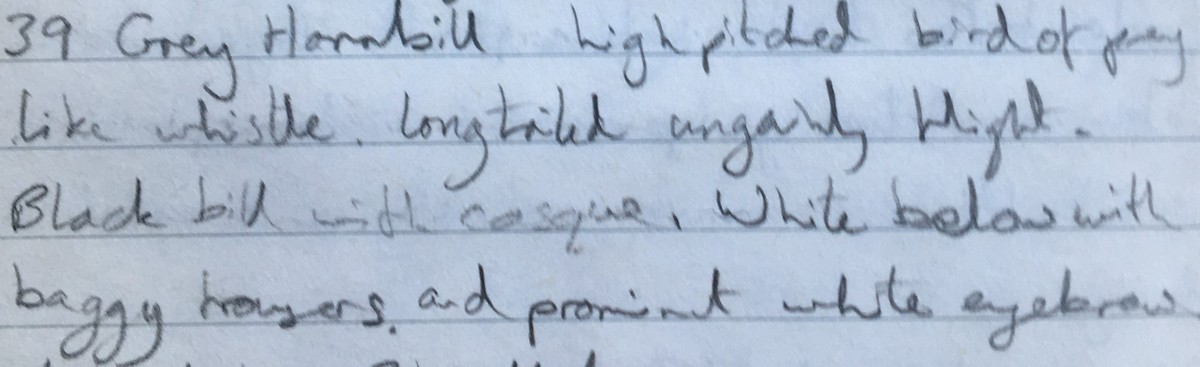 39 Grey Hornbill high pitched bird of prey
like whistle. Longtailed ungainly flight.
Black bill with casque. White below with
baggy trousers. and prominent white eyebrow